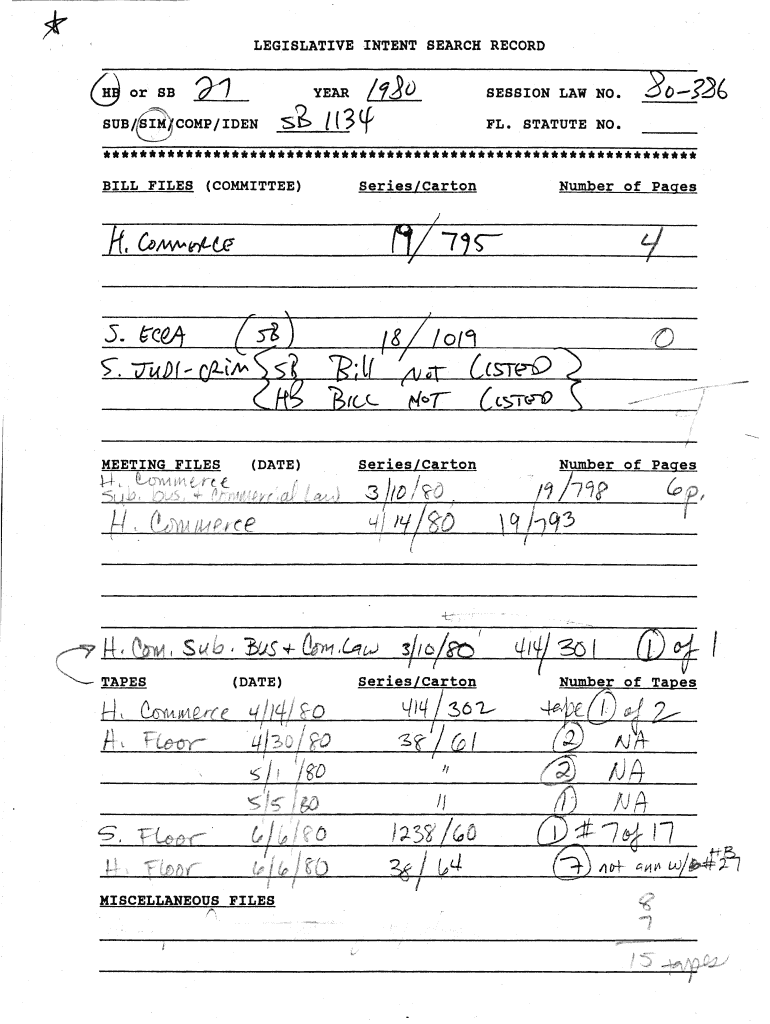 LEGISLATIVE INTENT SEARCH RECORD
HB or SB 27 YEAR 1980 SESSION LAW NO. 80-386
SUB/SIM/COMP/IDEN SB 1134 FL. STATUTE NO.
*********************************************************************
BILL FILES (COMMITTEE) Series/Carton Number of Pages
H. COMMERCE 19/795 4
S. ECCA (SB) 18/1019 0
S. JUDI-CRIM { SB Bill NOT LISTED }
{ HB BILL NOT LISTED }
MEETING FILES (DATE) Series/Carton Number of Pages
H. Commerce
Sub. bus. + Commercial Law 3/10/80 19/798 6p.
H. Commerce 4/14/80 19/793
H. Com. Sub. Bus + Com. Law 3/10/80 414/301 1 of 1
TAPES (DATE) Series/Carton Number of Tapes
H. Commerce 4/14/80 414/302 tape 1 of 2
H. Floor 4/30/80 38/61 2 NA
5/1/80 " 2 NA
5/5/80 " 1 NA
S. Floor 6/6/80 1238/60 1 #7 of 17
H. Floor 6/6/80 38/64 7 not ann w/ HB #27
MISCELLANEOUS FILES 8
7
15 tapes